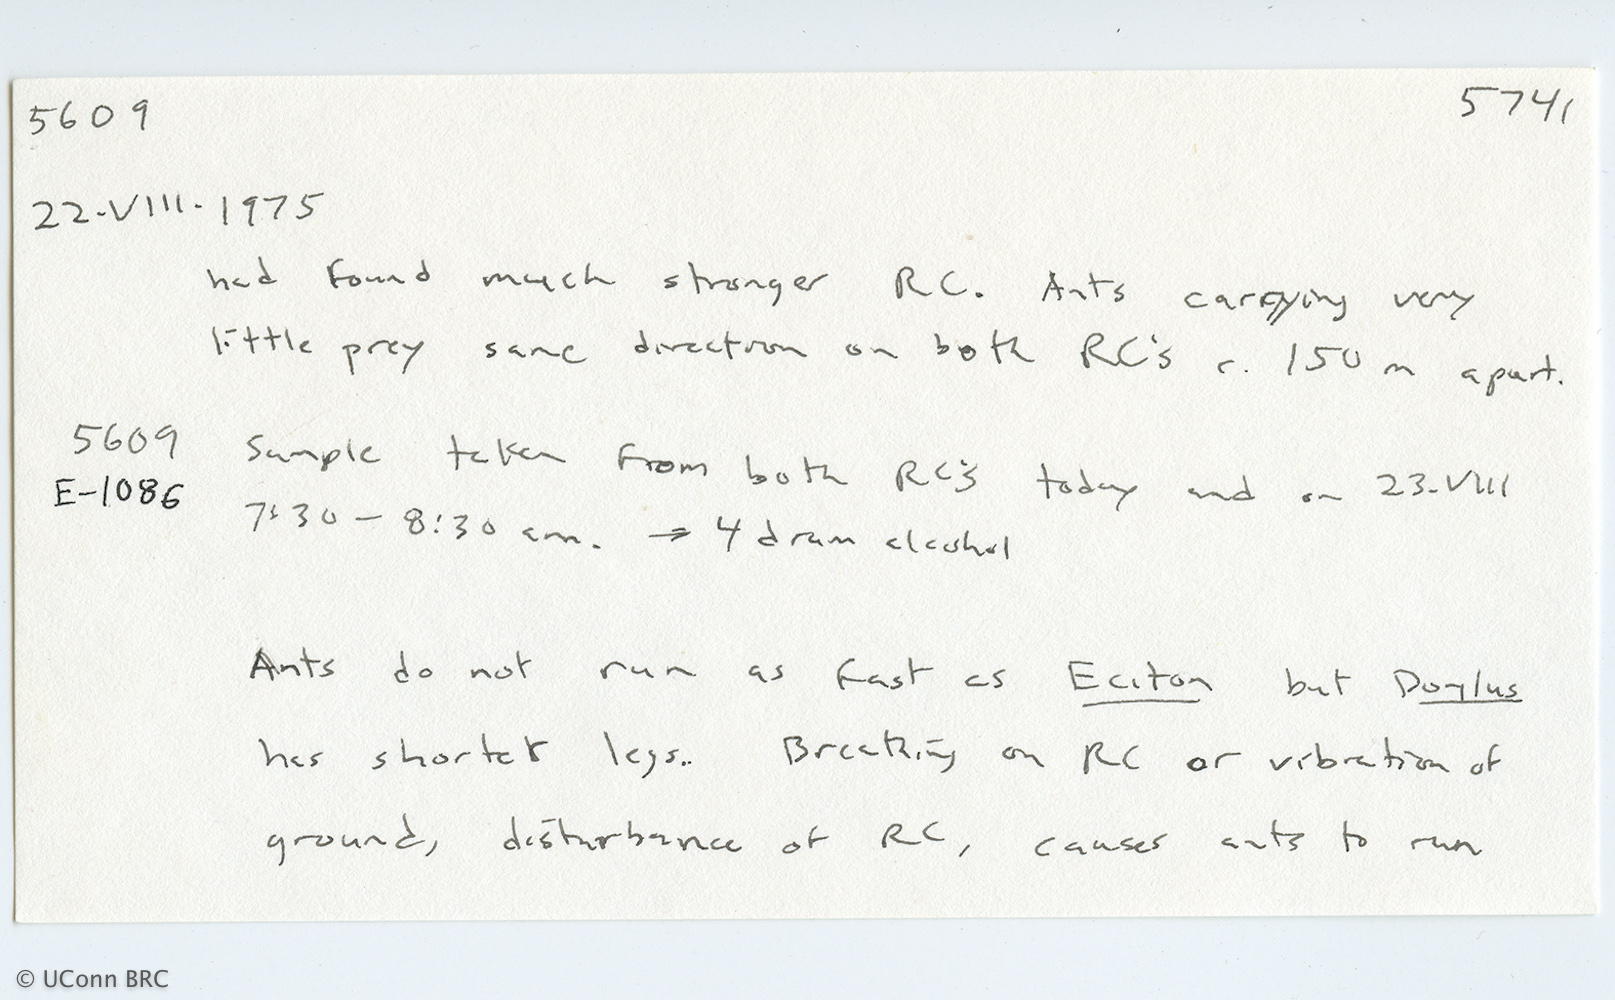 5609 5741
22-VIII-1975
had found much stronger RC. Ants carrying very
little prey same direction on both RC's c. 150 m apart.
5609 Sample taken from both RC's today and on 23-VIII
E-1086 7:30 - 8:30 am. → 4 dram alcohol
Ants do not run as fast as Eciton but Dorylus
has shorter legs.. Breathing on RC or vibration of
ground, disturbance of RC, causes ants to run
© UConn BRC